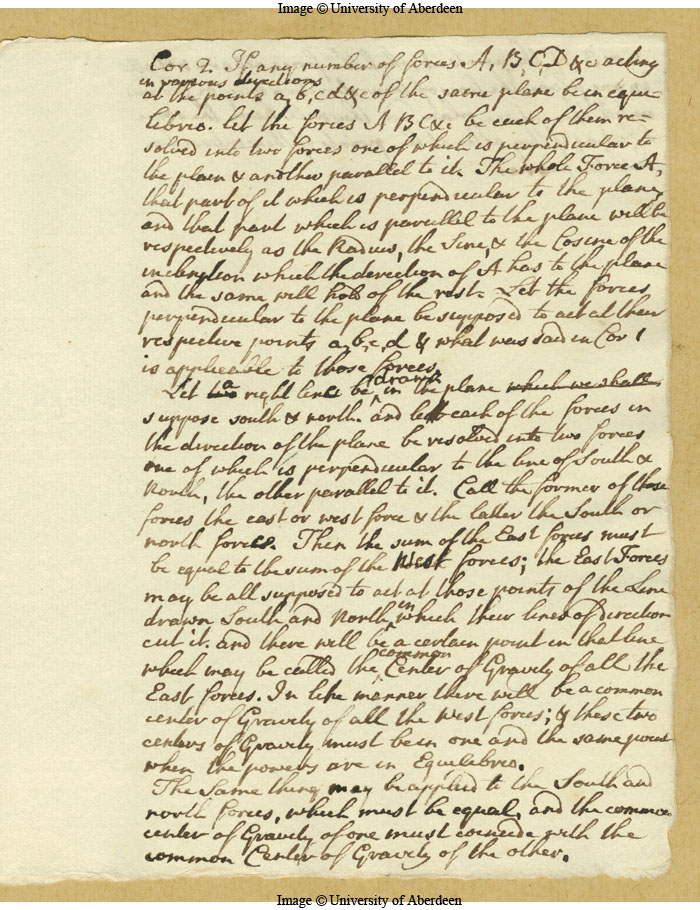 Image © University of Aberdeen
Cor 2. If any number of forces A, B, C, D &c acting
in various directions
at the points a, b, c, d &c of the same plane be in equi-
librio. let the forces A B C &c be each of them re-
solved into two forces one of which is perpendicular to
the plain & another parallel to it. The whole Force A,
that part of it which is perpendicular to the plane,
and that part which is parallel to the plane will be
respectively as the Radius, the Sine, & the Cosine of the
inclination which the direction of A has to the plane
and the same will hold of the rest. Let the forces
perpendicular to the plane be supposed to act at their
respective points a, b, c, d & what was said in Cor 1
is applicable to those forces
Let a right line be drawn in the plane which we shall
suppose south & north. and let each of the forces in
the direction of the plane be resolved into two forces
one of which is perpendicular to the line of South &
North, the other parallel to it. Call the former of those
forces the east or west force & the latter the South or
north forces. Then the sum of the East forces must
be equal to the sum of the West forces; the East Forces
may be all supposed to act at those points of the Line
drawn South and North in which their lines of Direction
cut it. and there will be a certain point in that line
which may be called the common Center of Gravity of all the
East forces. In like manner there will be a common
center of Gravity of all the West forces; & these two
centers of Gravity must be in one and the same point
when the powers are in Equilibrio.
The Same thing may be applied to the South and
north forces, which must be equal, and the common
center of Gravity of one must coincide with the
common Center of Gravity of the other.
Image © University of Aberdeen